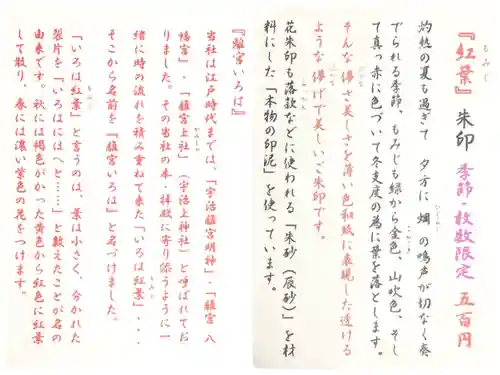 『紅葉』朱印 季節・枚数限定 五百円
もみじ
灼熱の夏も過ぎて 夕方に 蜩 の鳴声が切なく奏
ひぐらし
でられる季節、もみじも緑から金色、山吹色、そし
て真っ赤に色づいて冬支度の為に葉を落とします。
そんな儚さ美しさを薄い色和紙に表現した透ける
ような儚げで美しいご朱印です。
花朱印も落款などに使われる「朱砂（辰砂）」を材
料にした「本物の印泥」を使っています。
『離宮いろは』
当社は江戸時代までは、「宇治離宮明神」・「離宮 八
幡宮」・「離宮上社」（宇治上神社）と呼ばれてお
りました。その当社の本・拝殿に寄り添うように一
緒に時の流れを積み重ねて来た「いろは紅葉」・・・
もみじ
そこから名前を『離宮いろは』と名づけました。
「いろは紅葉」と言うのは、葉は小さく、分かれた
もみじ
裂片を「いろはにほへと……」と数えたことが名の
由来です。秋には褐色がかった黄色から紅色に紅葉
して散り、春には濃い紫色の花をつけます。